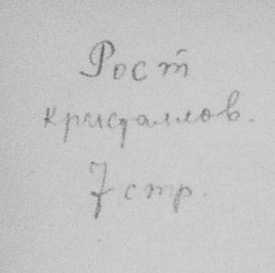 Рост
кристаллов.
7 стр.